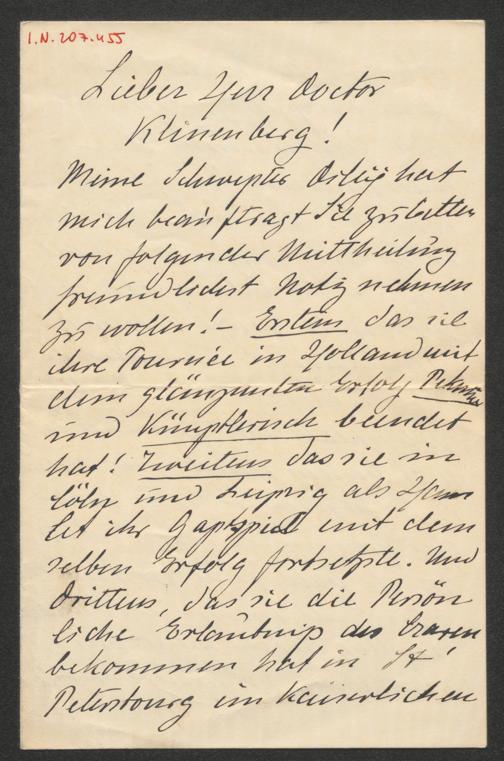 I.N. 207.455
Lieber Herr Doctor
Klinenberg!
Meine Schwester hat
mich beauftragt Sie zu bitten
von folgender Mittheilung
freundlichst Notiz nehmen
zu wollen! - Erstens das sie
ihre Tournée in Holland mit
dem glänzensten Erfolg
und Künstlerisch beendet
hat! Zweitens das sie in
Cöln und Leipzig als Ham
let ihr Gastspiel mit dem
selben Erfolg fortsetzte. Und
Drittens, das sie die Persön
liche Erlaubniss des Czaren
bekommen hat in St.
Petersbourg im Kaiserlichen